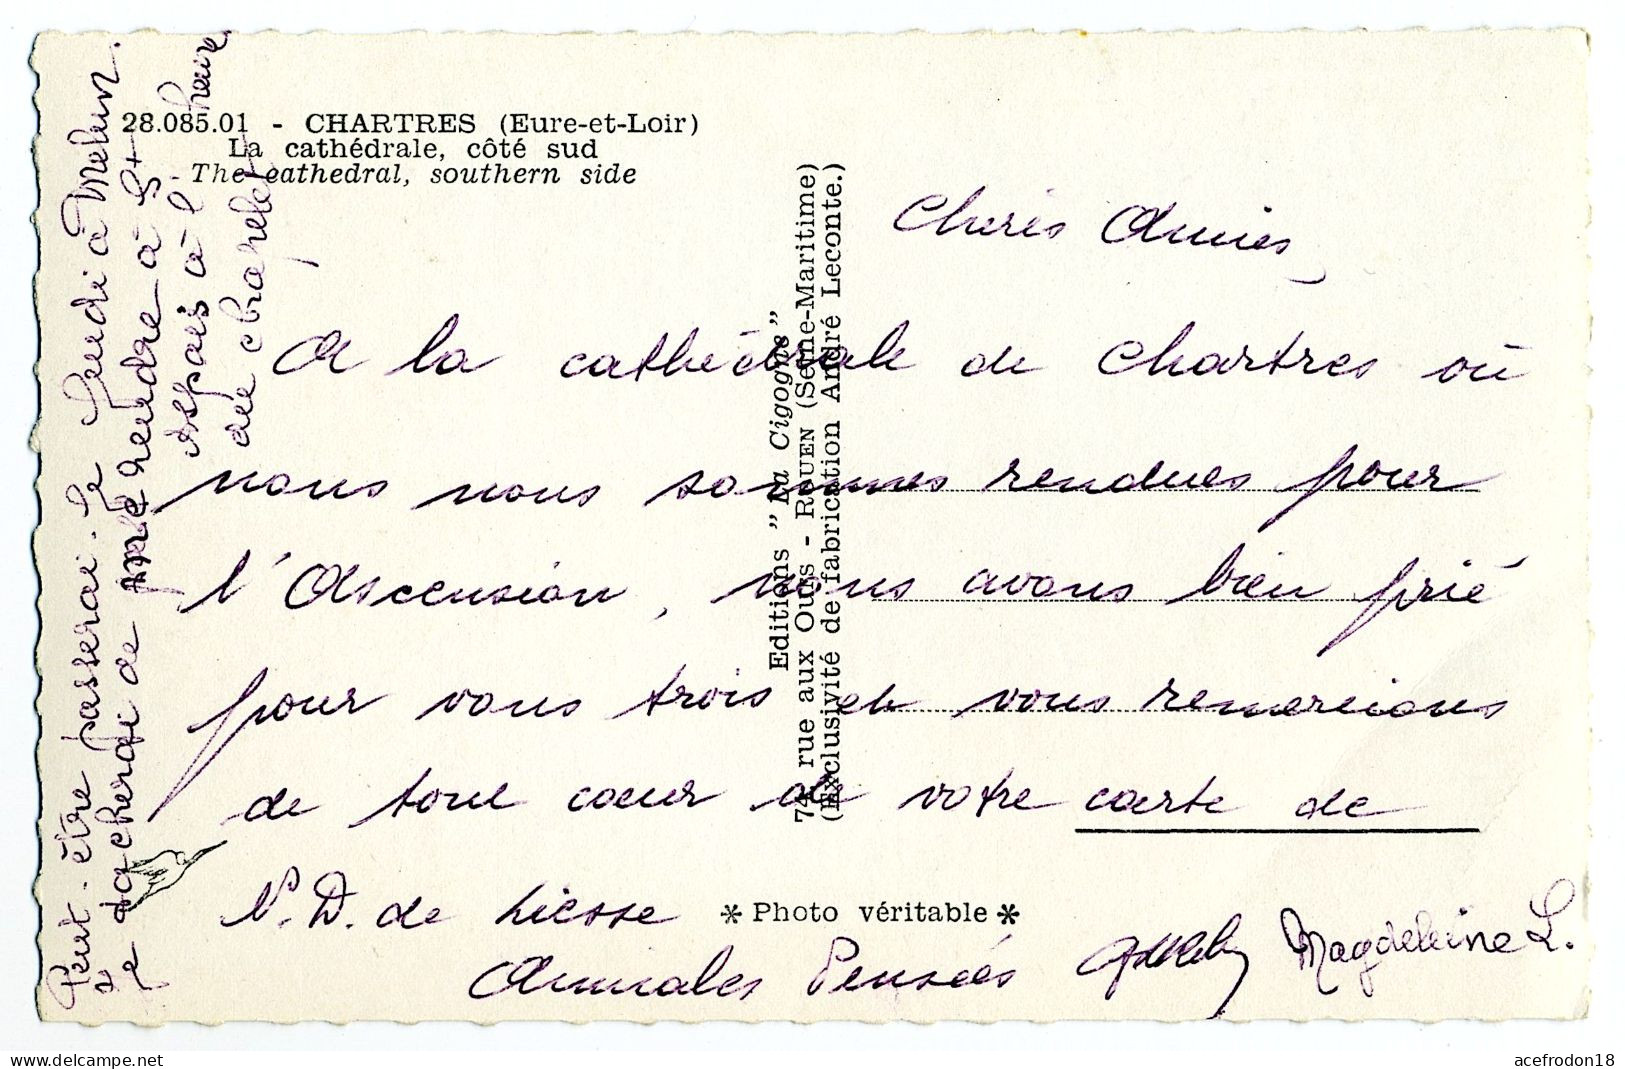 28.085.01 - CHARTRES (Eure-et-Loir)
La cathédrale, côté sud
The cathedral, southern side
Editions "La Cigogne"
74, rue aux Ours - ROUEN (Seine-Maritime)
(Exclusivité de fabrication André Leconte.)
Cheres Amies,
A la cathédrale de Chartres où
nous nous sommes rendues pour
l'Ascension, nous avons bien prié
pour vous trois et vous remercions
de tout cœur de votre carte de
N.D. de Liesse
Amicales Pensées
Magdeleine L.
* Photo véritable *
Peut-être passerai-je Lundi à Melun.
Je tacherai de me rendre à St
Aspais à l'heure
du chapelet
acefrodon18